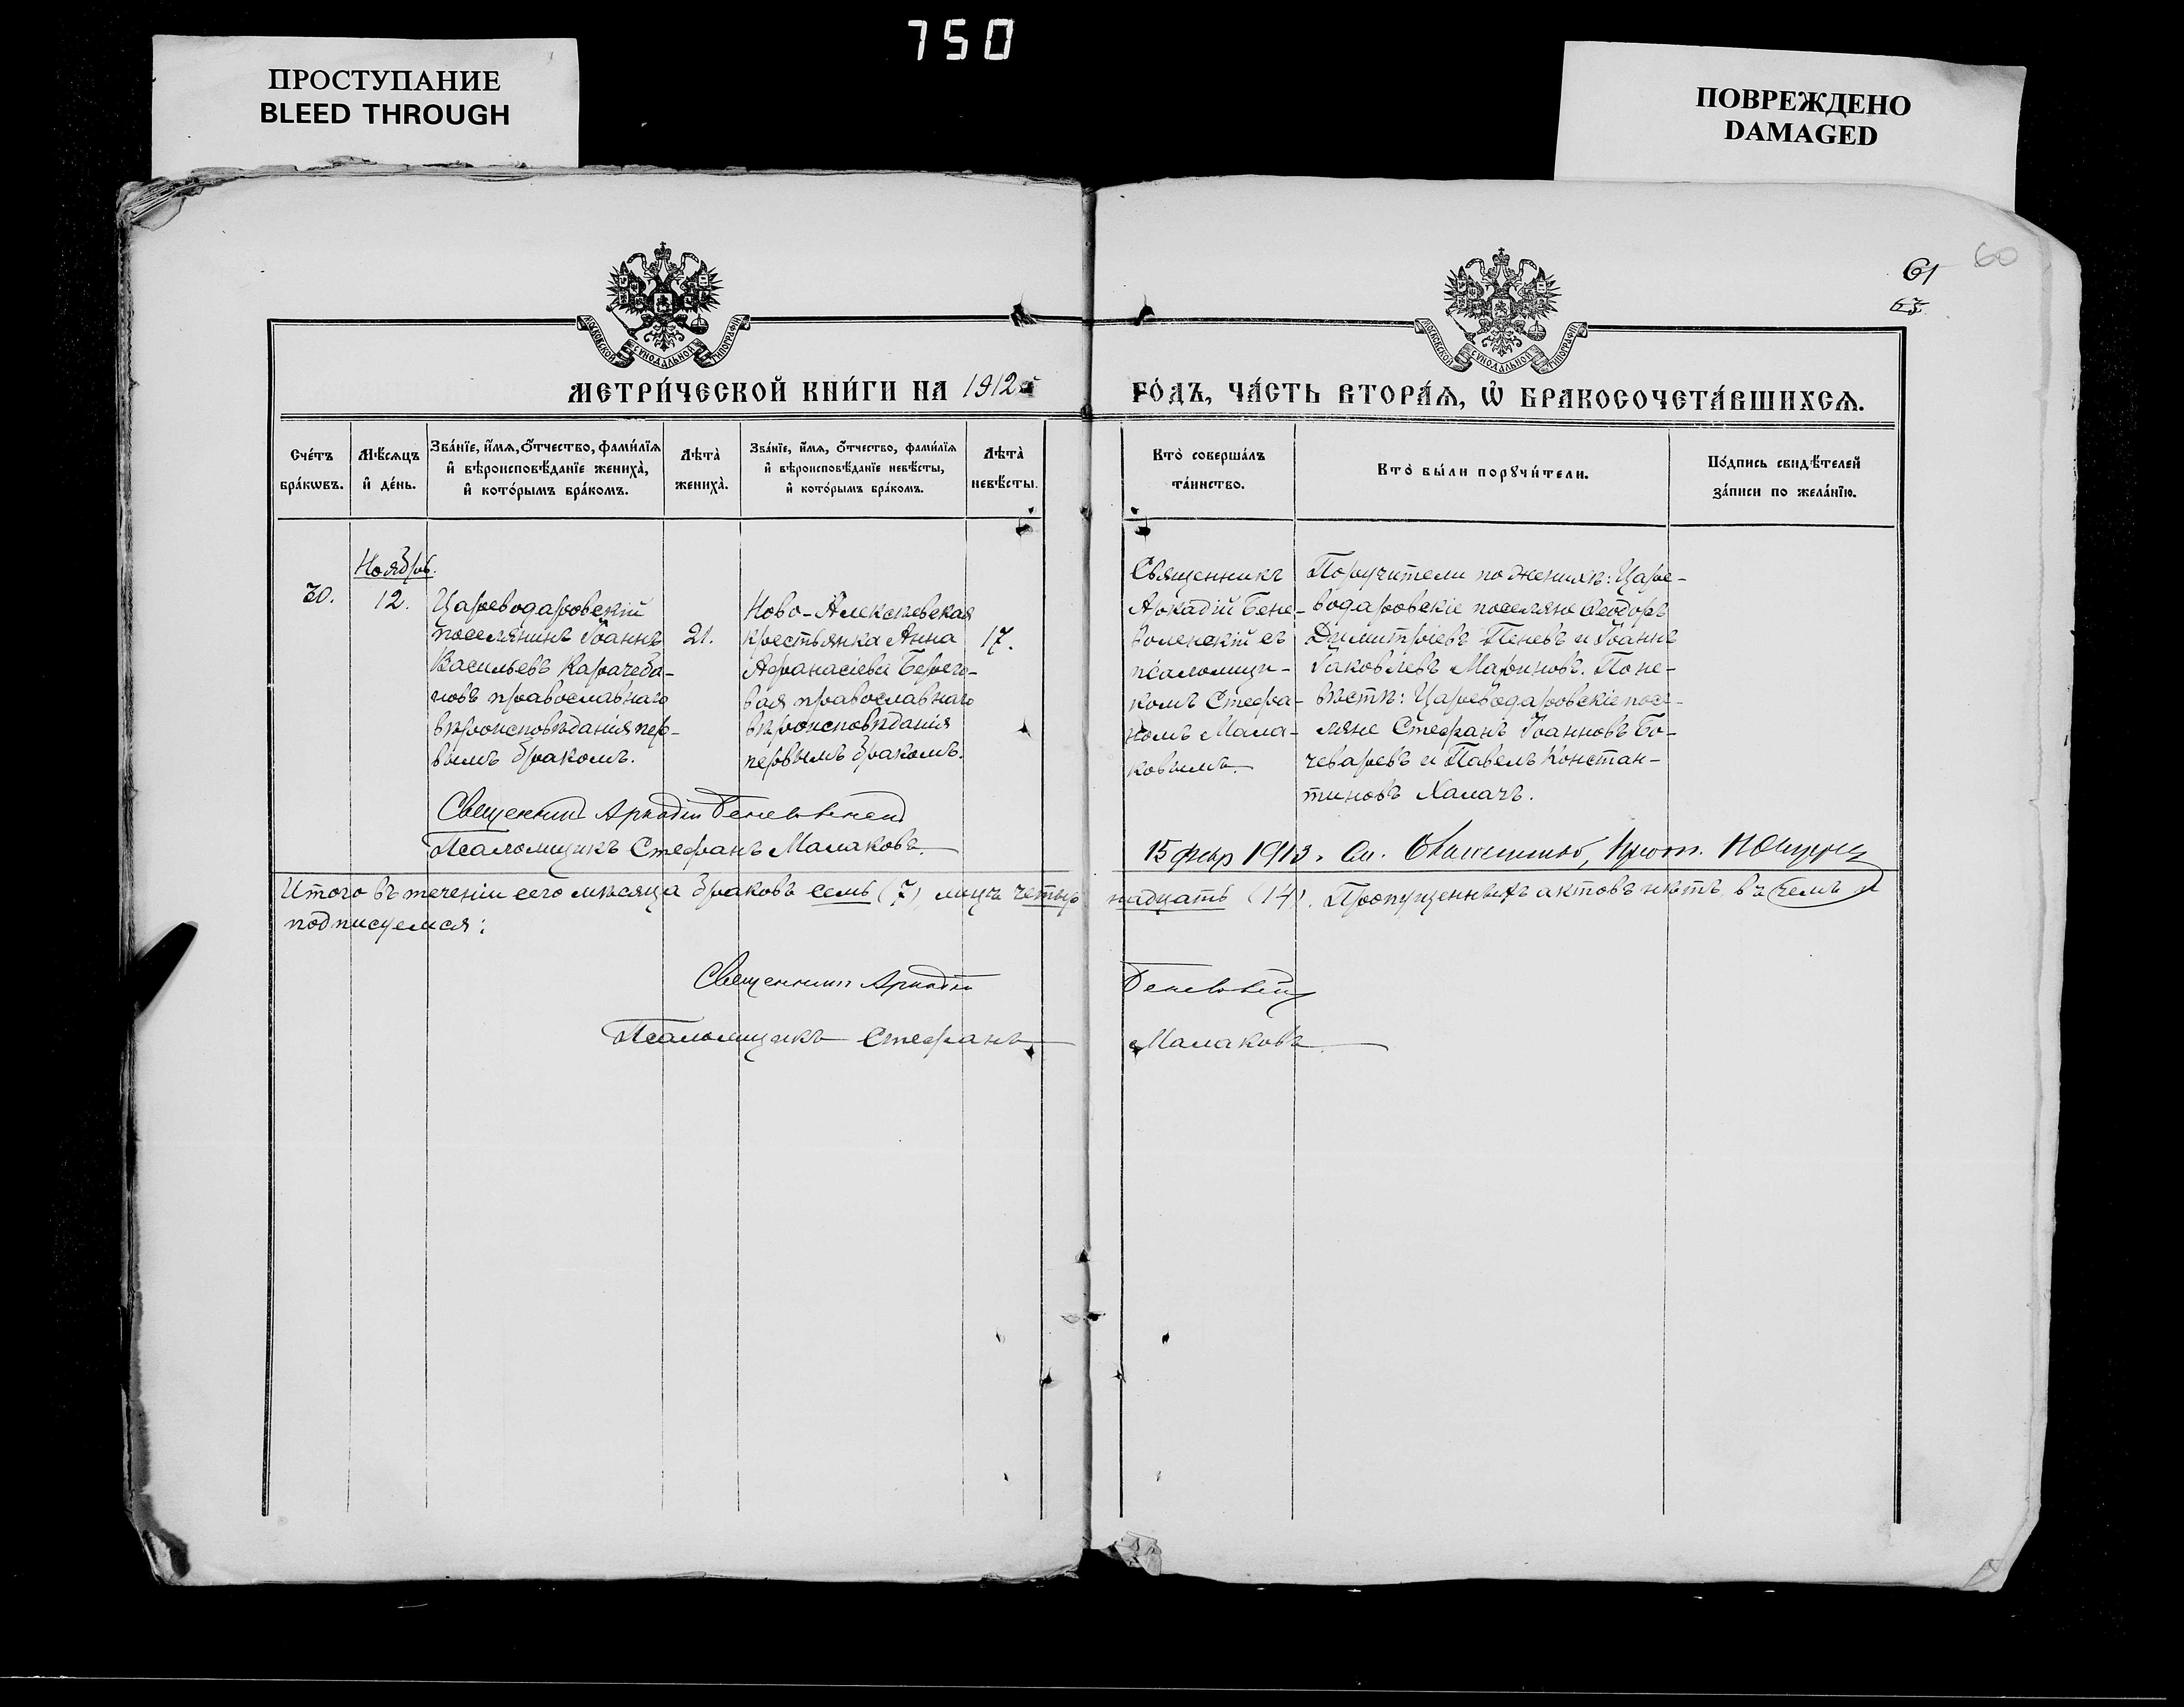 750
ПРОСТУПАНИЕ
BLEED THROUGH
ПОВРЕЖДЕНО
DAMAGED
60
61
63
МОСКОВСКОЙ СѴНОДАЛЬНОЙ ТИПОГРАФІИ
МОСКОВСКОЙ СѴНОДАЛЬНОЙ ТИПОГРАФІИ
МЕТРИ́ЧЕСКОЙ КНИ́ГИ НА 1912й ГО́ДЪ, ЧА́СТЬ ВТОРА́Ѧ, Ѡ҆ БРАКОСОЧЕТА́ВШИХСѦ.
Сче́тъ
бра́кѡвъ.
Мѣ́сѧцъ
и҆ де́нь.
Зва́нїе, и҆́мѧ, ѻ҆́тчество, фами́лїѧ
и҆ вѣроисповѣ́данїе жениха̀,
и҆ кото́рымъ бра́комъ.
Лѣта̀
жениха̀.
Зва́нїе, и҆́мѧ, ѻ҆́тчество, фами́лїѧ
и҆ вѣроисповѣ́данїе невѣ́сты,
и҆ кото́рымъ бра́комъ.
Лѣта̀
невѣ́сты.
Кто̀ соверша́лъ
та́инство.
Кто̀ бы́ли порꙋчи́тели.
По́дпись свидѣ́телей
за́писи по жела́нїю.
Ноябрь.
30.
12.
Цареводаровскій
поселянинъ Іоаннъ
Васильевъ Карачеба-
новъ православнаго
вѣроисповѣданія пер-
вымъ бракомъ.
21.
Ново-Алексѣевская
крестьянка Анна
Афанасіева Берего-
вая православнаго
вѣроисповѣданія
первымъ бракомъ.
17.
Священникъ
Аркадій Бене-
воленскій съ
псаломщи-
комъ Стефа-
номъ Мала-
ковымъ.
Поручители по женихѣ: Царе-
водаровскіе поселяне Ѳеодоръ
Димитріевъ Пеневъ и Іоаннъ
Іаковлевъ Мариновъ. По не-
вѣстѣ: Царевдаровскіе посе-
ляне Стефанъ Іоанновъ Бо-
чеваревъ и Павелъ Констан-
тиновъ Халачъ.
Священникъ Аркадій Беневоленскій
Псаломщикъ Стефанъ Малаковъ.
15 февр 1913.
Итого въ теченіи сего мѣсяца браковъ семь (7) лицъ четыр надцать (14). Пропущенныхъ актовъ нѣтъ въ чемъ и
подписуемся:
Священникъ Аркадій Беневоленскій
Псаломщикъ Стефанъ Малаковъ